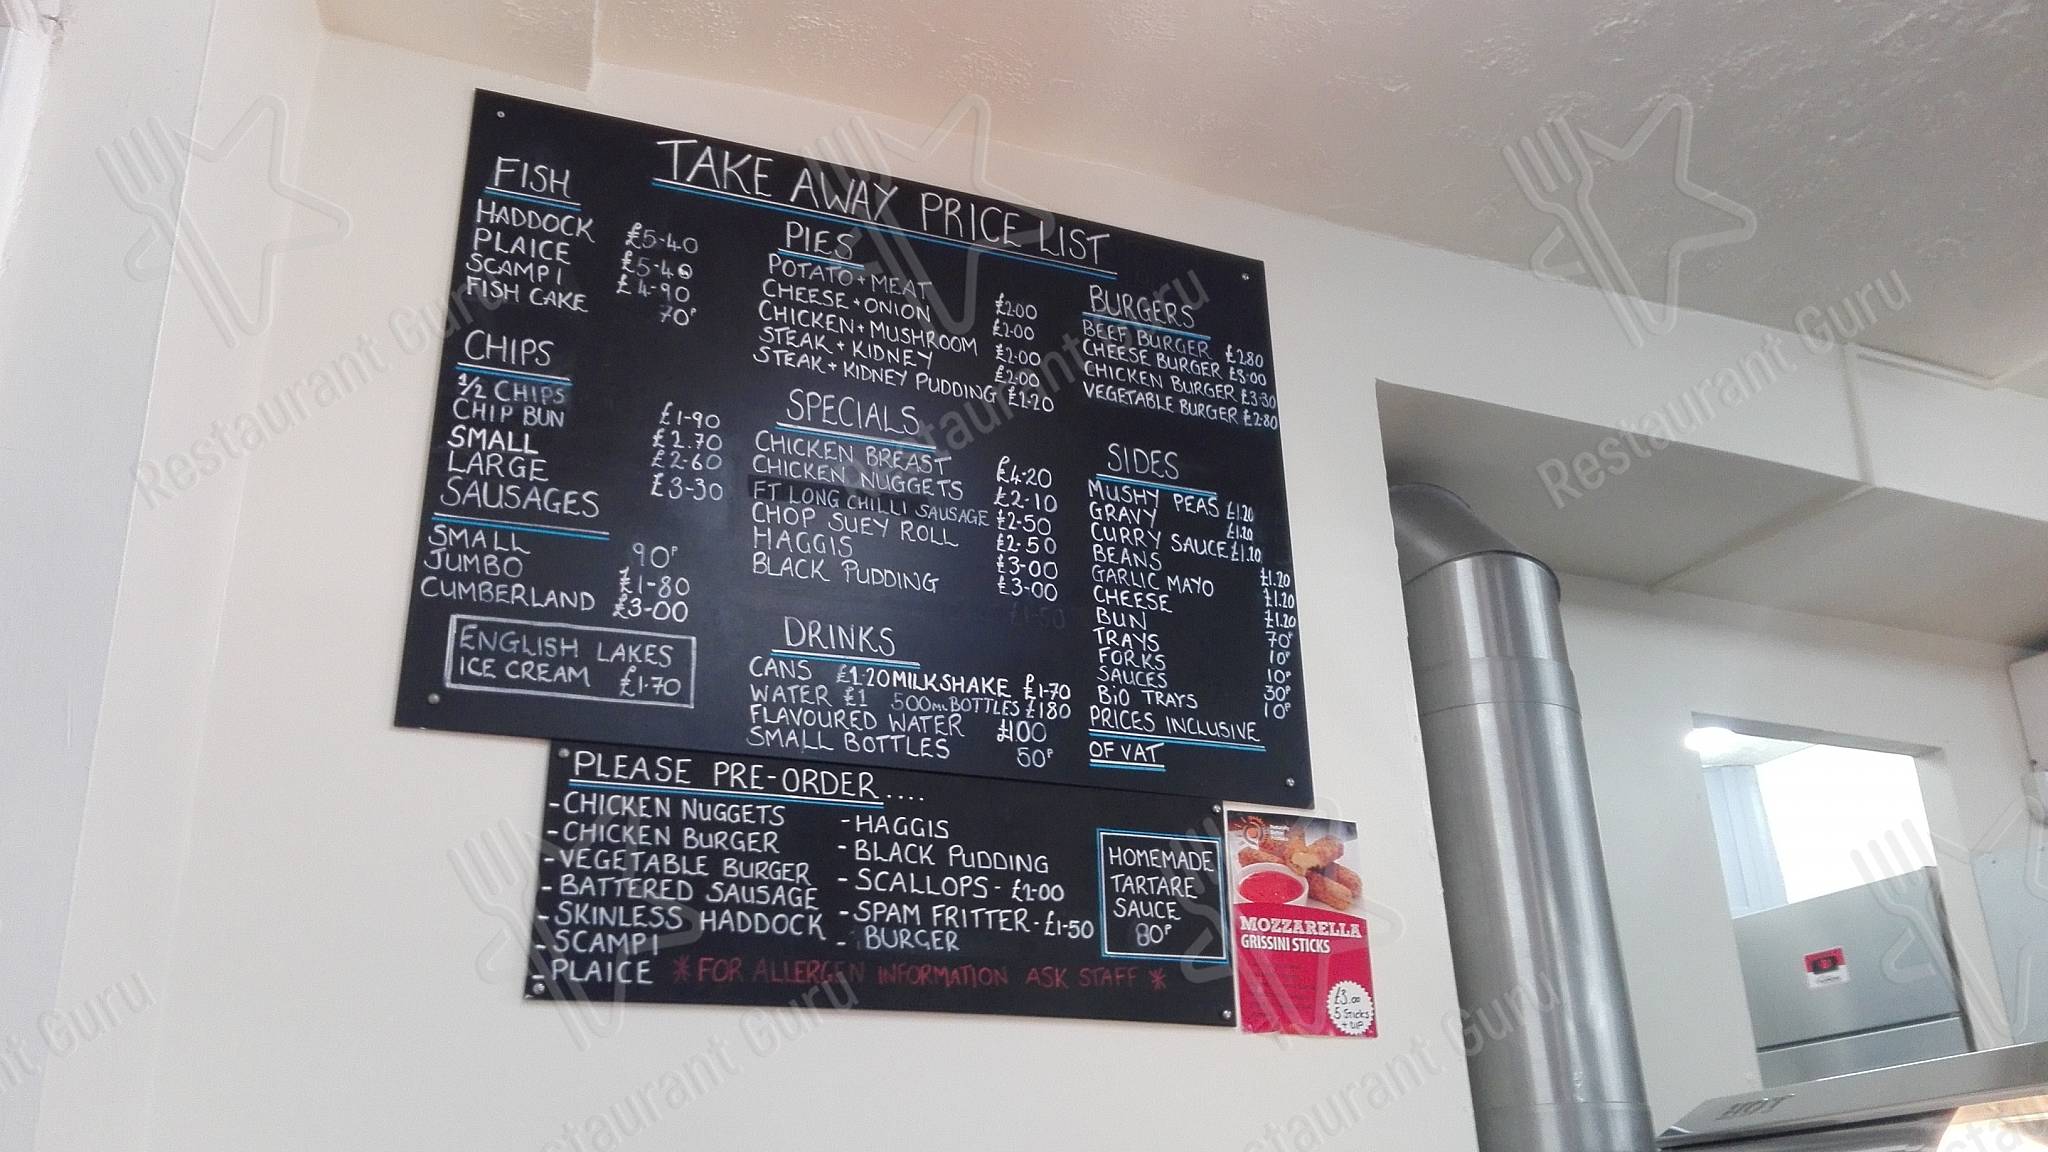 TAKE AWAY PRICE LIST
FISH
HADDOCK £5-40
PLAICE £5-40
SCAMPI £4-90
FISH CAKE 70P
CHIPS
1/2 CHIPS £1-90
CHIP BUN £2.70
SMALL £2-60
LARGE £3-30
SAUSAGES
SMALL 90P
JUMBO £1-80
CUMBERLAND £3-00
ENGLISH LAKES
ICE CREAM £1.70
PIES
POTATO + MEAT £2.00
CHEESE + ONION £2.00
CHICKEN + MUSHROOM £2.00
STEAK + KIDNEY £2.00
STEAK + KIDNEY PUDDING £2.20
SPECIALS
CHICKEN BREAST £4.20
CHICKEN NUGGETS £2-10
FT LONG CHILLI SAUSAGE £2-50
CHOP SUEY ROLL £2.50
HAGGIS £3-00
BLACK PUDDING £3-00
£1-50
DRINKS
CANS £1.20 MILKSHAKE £1-70
WATER £1 500ml BOTTLES £1.80
FLAVOURED WATER £1.00
SMALL BOTTLES 50P
BURGERS
BEEF BURGER £2.80
CHEESE BURGER £3.00
CHICKEN BURGER £3.30
VEGETABLE BURGER £2.80
SIDES
MUSHY PEAS £1.20
GRAVY £1.20
CURRY SAUCE £1.20
BEANS £1.20
GARLIC MAYO £1.20
CHEESE £1.20
BUN 70P
TRAYS 10P
FORKS 10P
SAUCES 30P
BIO TRAYS 10P
PRICES INCLUSIVE
OF VAT
PLEASE PRE-ORDER....
- CHICKEN NUGGETS
- CHICKEN BURGER
- VEGETABLE BURGER
- BATTERED SAUSAGE
- SKINLESS HADDOCK
- SCAMPI
- PLAICE
- HAGGIS
- BLACK PUDDING
- SCALLOPS - £1.00
- SPAM FRITTER - £1.50
- BURGER
* FOR ALLERGEN INFORMATION ASK STAFF *
HOMEMADE
TARTARE
SAUCE
80P
MOZZARELLA
GRISSINI STICKS
£3.00
5 Sticks
+ DIP
HOT
Restaurant Guru
Restaurant Guru
Restaurant Guru
Restaurant Guru
Restaurant Guru